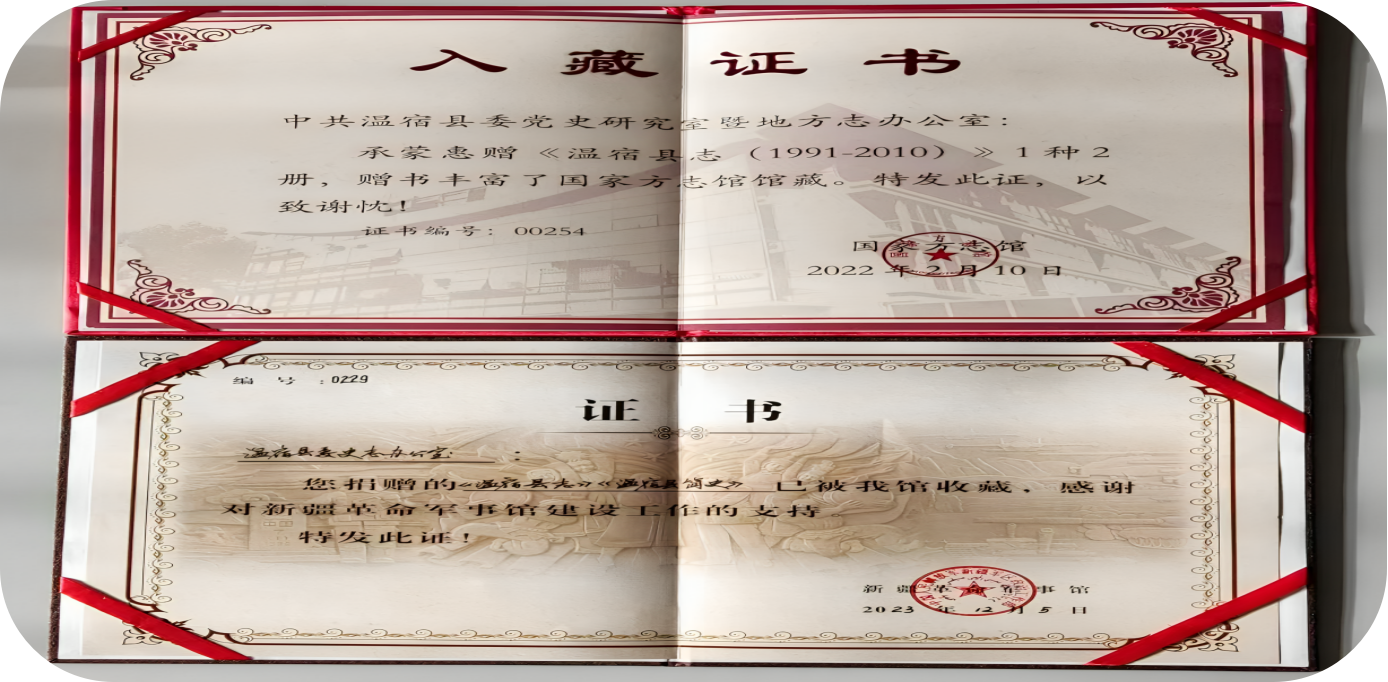 入藏证书
中共温宿县委党史研究室暨地方志办公室：
承蒙惠赠《温宿县志（1991-2010）》1种2
册，赠书丰富了国家方志馆馆藏。特发此证，以
致谢忱！
证书编号：00254
国家方志馆
2022年2月10日
编号：0229
证书
温宿县委史志办公室：
您捐赠的《温宿县志》《温宿县简史》已被我馆收藏，感谢
对新疆革命军事馆建设工作的支持。
特发此证！
新疆革命军事馆
2023年12月5日